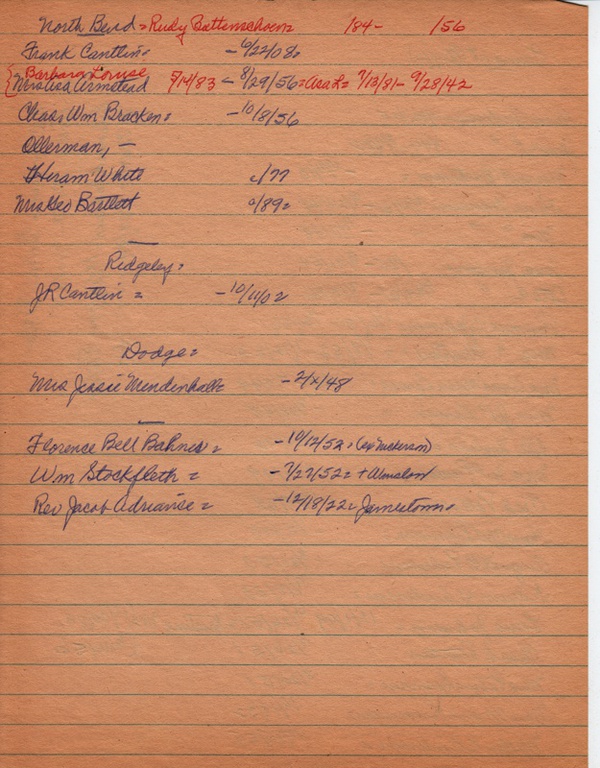 North Bend = Rudy Battenschoen /84- /56
Frank Cantlin= - 6/22/08=
Barbara Louise
{Mrs Asa Armstead 5/14/83 - 8/29/56 = Asa L= 7/13/81- 9/28/42
Chas, Wm Bracken= - 10/8/56
Ollerman, -
Hiram White c/77
Mrs Geo Bartlett 0/89=
Ridgeley=
JR Cantlin = - 10/11/02
Dodge=
Mrs Jessie Mendenhall= - 2/x/48
Florence Bell Bahner= - 10/12/52= (ex Nickerson)
Wm Stockfleth = - 7/27/52=
Rev Jacob Adriance = - 12/18/22= Jamestown=